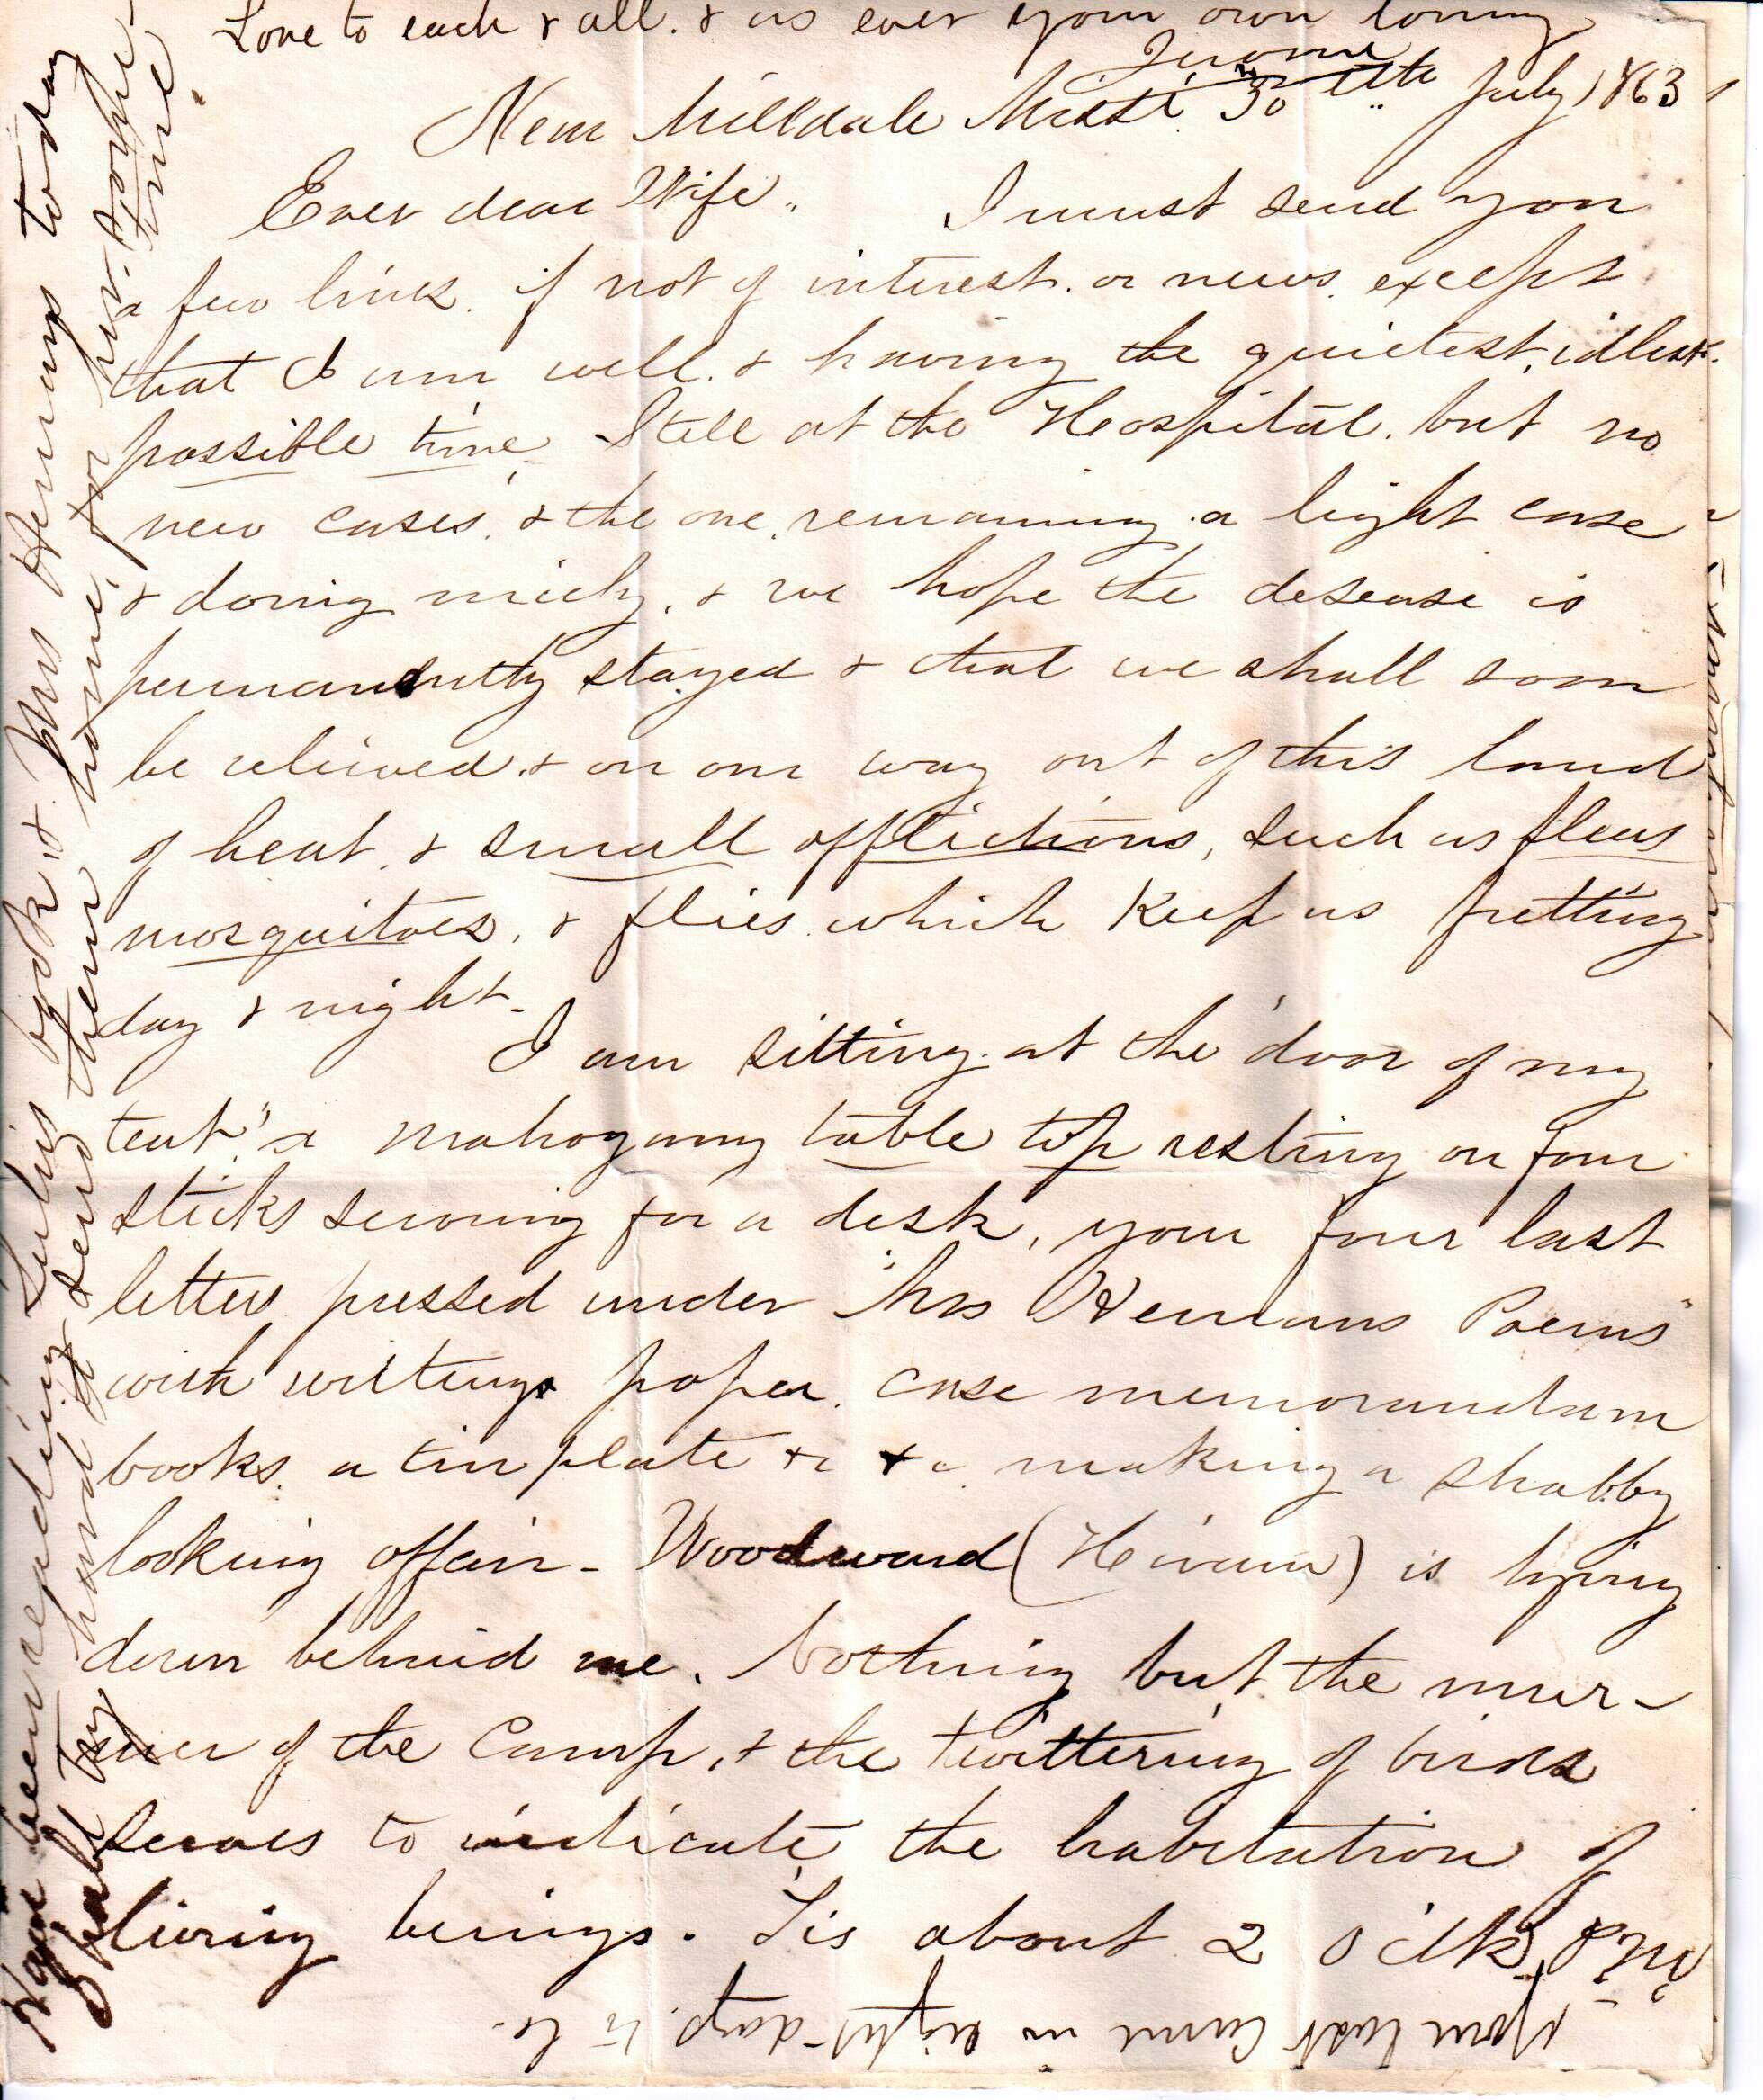 Love to each & all. & as ever your own loving
Jerome
Near Milldale Misst. 30th July 1863
Ever dear Wife. I must send you
a few lines. if not of interest. or news. except
that I am well. & having the quietest, idlest.
possible time. Still at the Hospital. but no
new cases. & the one remaining a light case
& doing nicely, & we hope the desease is
permanently stayed & that we shall soon
be relieved. & on our way out of this land
of heat. & small afflictions, such as fleas
mosquitoes, & flies. which keep us fretting
day & night-
I am sitting at the door of my
tent, a mahogany table top resting on four
sticks serving for a desk, your four last
letters pressed under "Mrs Hemans Poems"
with writing paper. case memorandum
books. a tin plate &c &c making a shabby
looking affair - Woodward (Hiram) is lying
down behind me. Nothing but the mur-
mer of the Camp, & the twittering of birds
serves to indicate the habitation of
living beings. Tis about 2 oclk P.M.
Your last came in eight days.
Have been reading Sulis book & Mrs Hemans today
Shall try hard to send them home, for her. some
time"